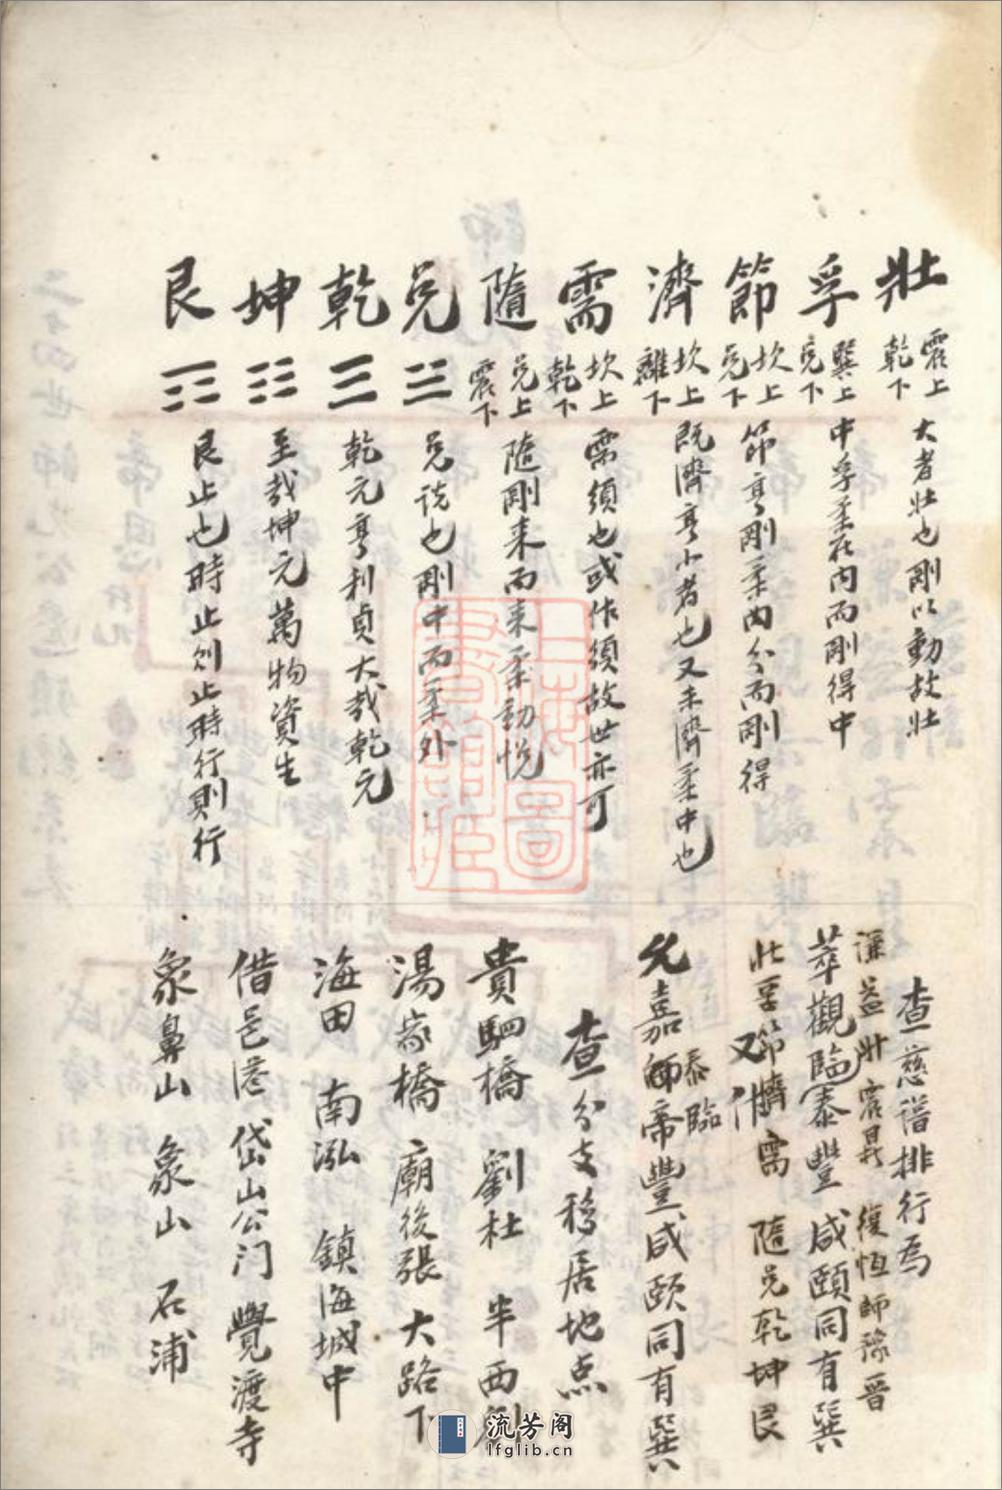 壯 震上乾下 大者壯也剛以動故壯
孚 巽上兌下 中孚柔在內而剛得中
節 坎上兌下 節亨剛柔內分而剛得
濟 坎上離下 既濟亨小者也又未濟柔中也
需 坎上乾下 需須也或作須故世亦可
隨 兌上震下 隨剛來而來柔動悅
兌 ☱ 兌說也剛中而柔外
乾 ☰ 乾元亨利貞大哉乾元
坤 ☷ 至哉坤元萬物資生
艮 ☶ 艮止也時止則止時行則行
查慈譜排行為
謙益壯震昇 復恆師豫晉
萃觀臨泰豐 咸頤同有巽
壯孚節濟需 隨兌乾坤艮
又作
泰臨
允嘉師帝豐 咸頤同有巽
查分支移居地点
貴駟橋 劉杜 半西
湯家橋 廟後張 大路下
海田 南泓 鎮海城中
借邑 岱山公门 覺渡寺
象鼻山 象山 石浦
上海圖書館藏
流芳阁
lfglib.cn